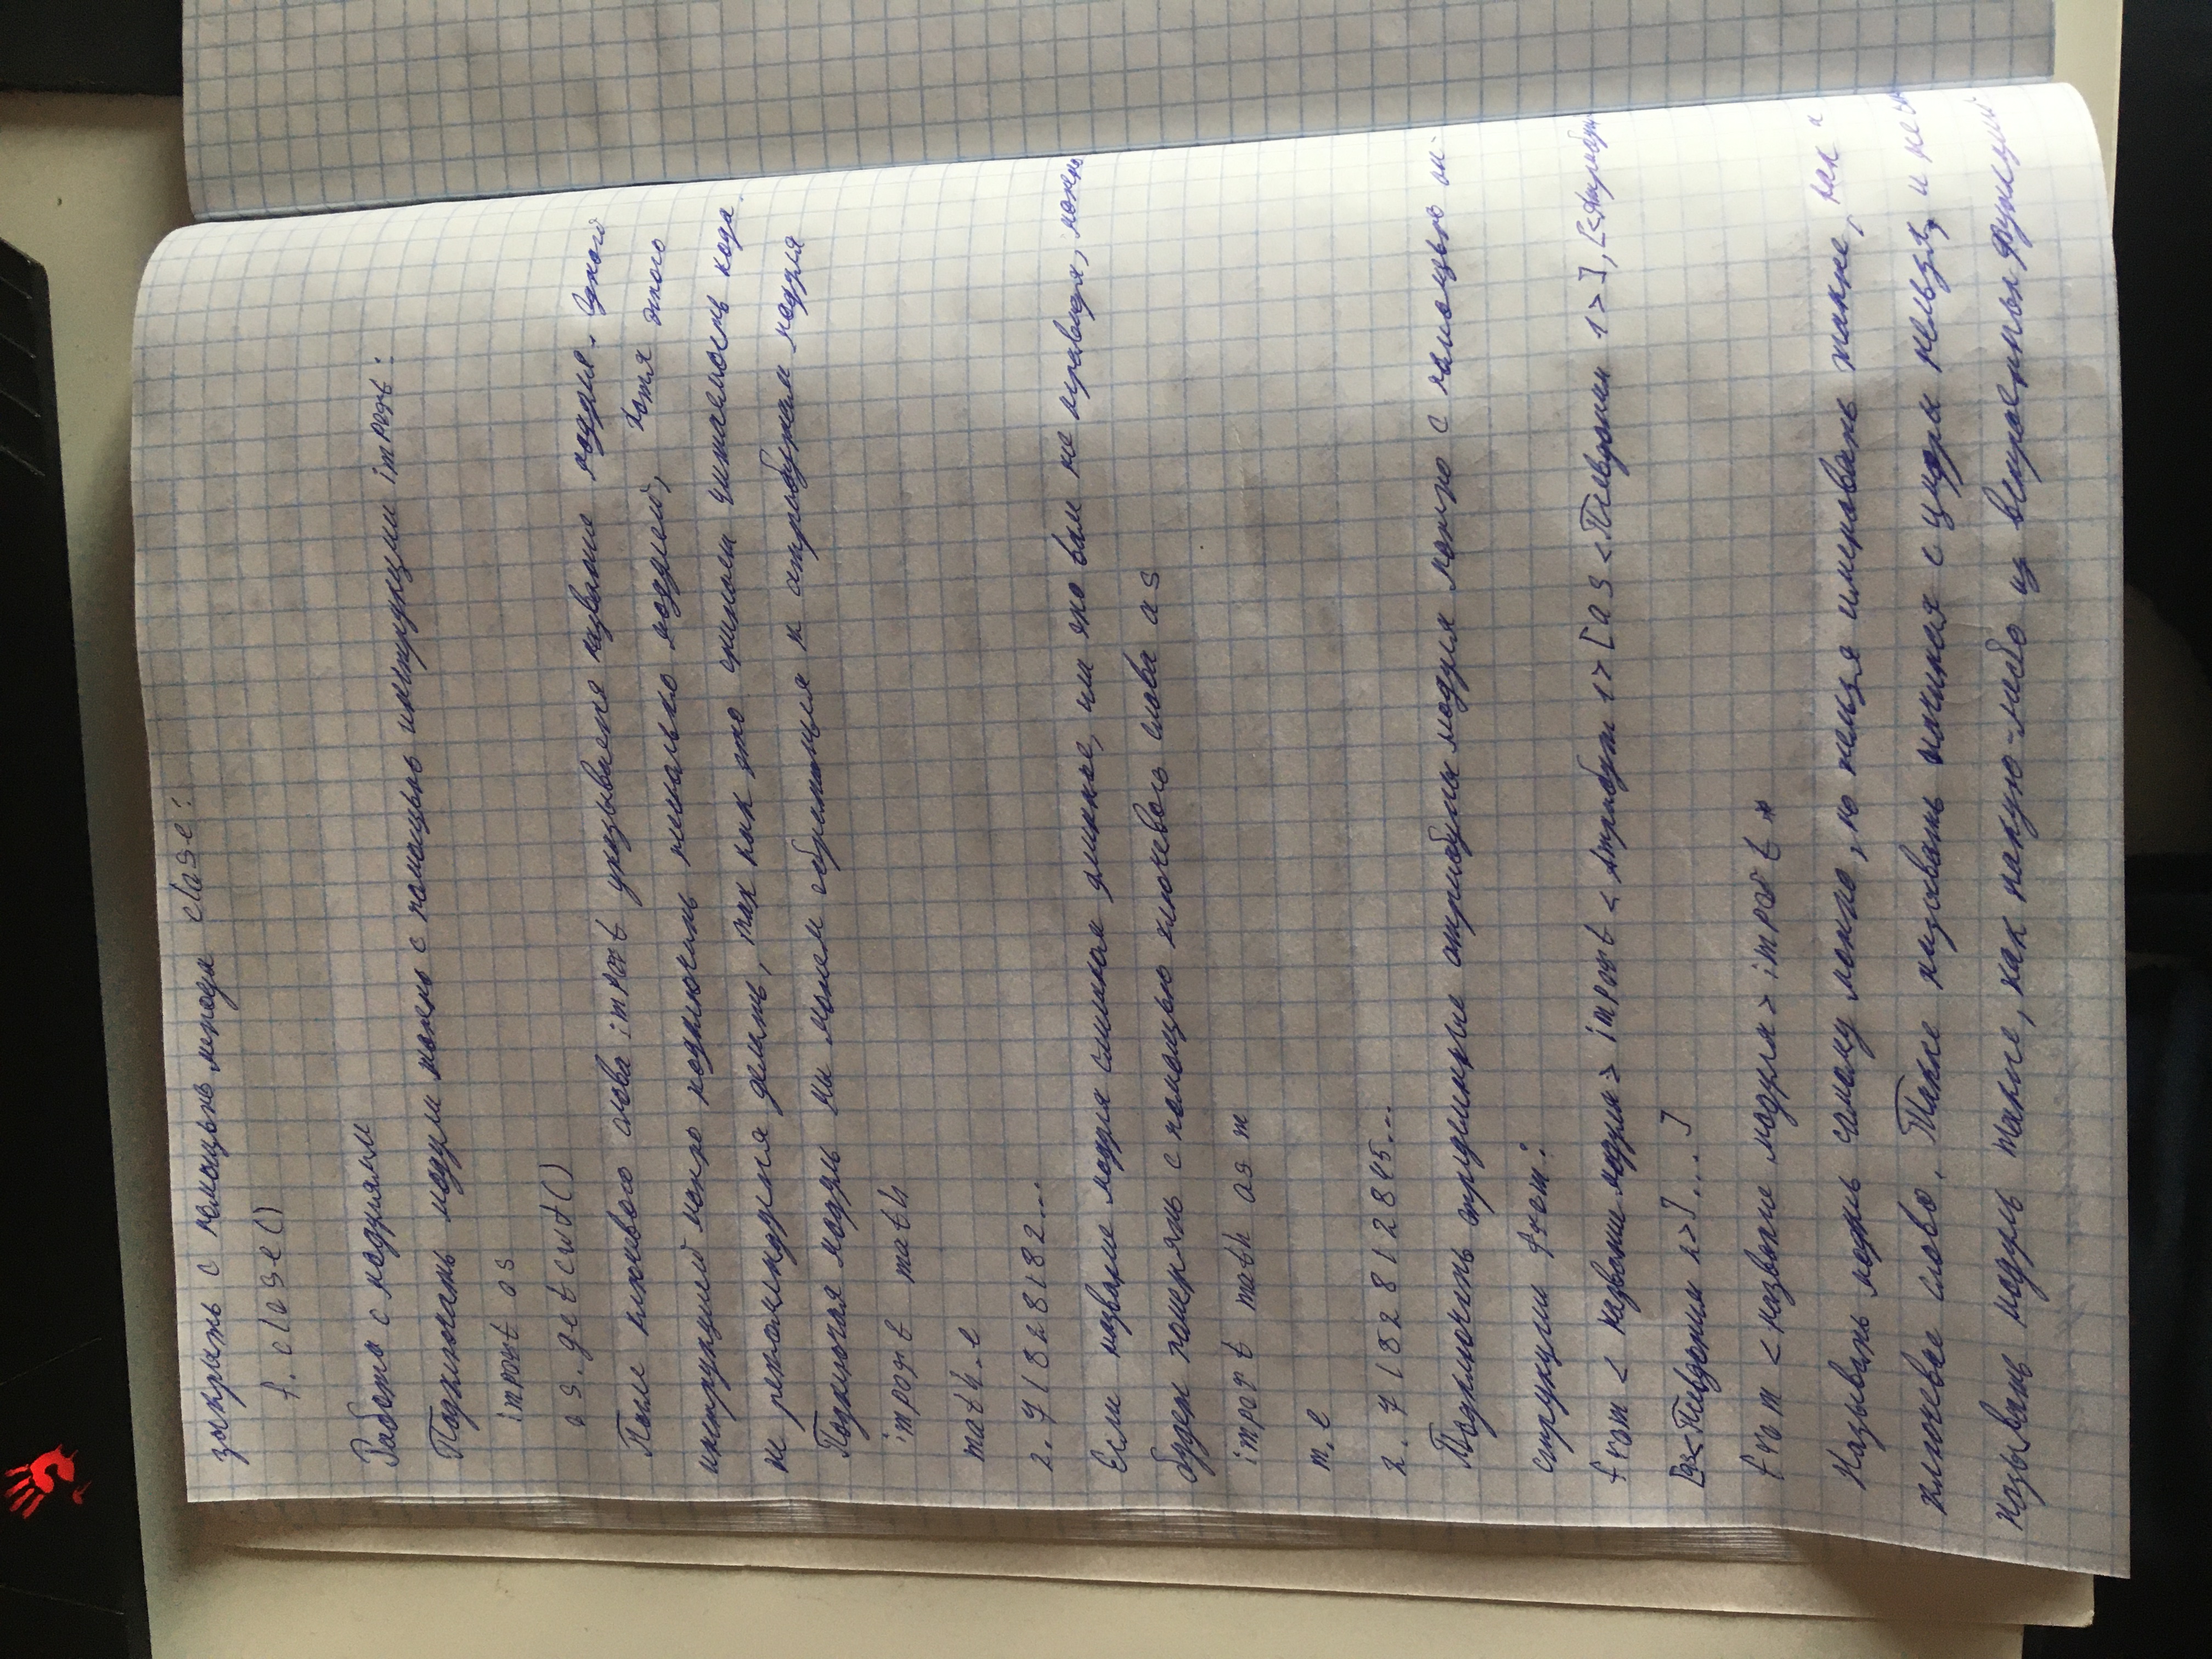 закрыть с помощью метода close:
f. close()
Работа с модулями
Подключать модули можно с помощью инструкции import:
import os
os. getcwd()
После ключевого слова import указывается название модуля. Одной
инструкцией можно подключить несколько модулей, хотя этого
не рекомендуется делать, так как это снижает читаемость кода.
Подключая модуль мы можем обратиться к атрибутам модуля
import math
math. e
2. 71828182...
Если название модуля слишком длинное, или оно вам не нравится, можно
будет поменять с помощью ключевого слова as
import math as m
m. e
2. 7182812845...
Подключить определенные атрибуты модуля можно с помощью ин-
струкции from:
from < название модуля > import < Атрибут 1 > [as < Псевдоним 1 > ], [<Атрибут
[as<Псевдоним 2>] ... ]
from < название модуля > import *
Называть модуль самому можно, но нельзя именовать также, как и
ключевое слово. Также называть начиная с цифры нельзя, и не
называть модуль также, как какую-либо из встроенных функций